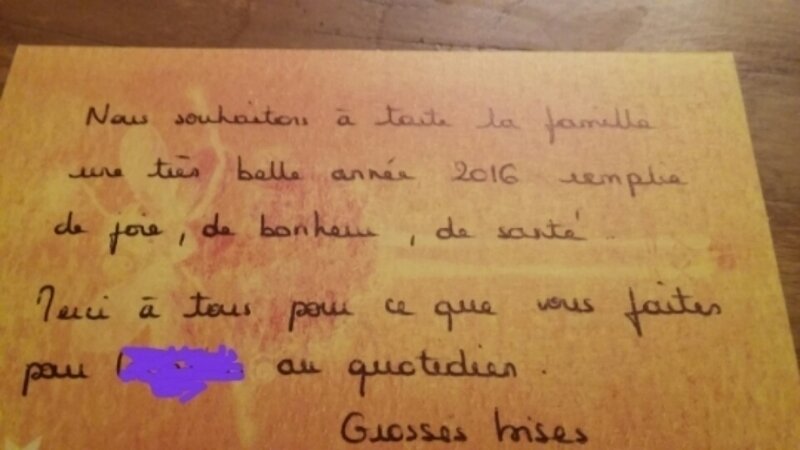 Nous souhaitons à toute la famille
une très belle année 2016 remplie
de joie, de bonheur, de santé
Merci à tous pour ce que vous faites
pour au quotidien.
Grosses bises